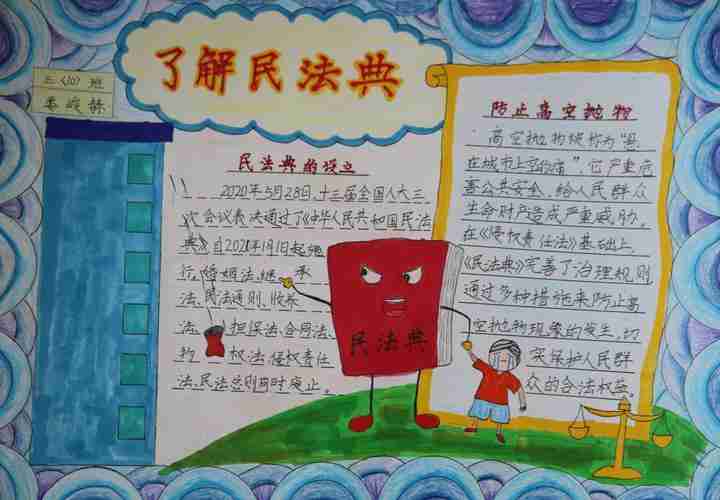 了解民法典
三〈10〉班
民法典的设立
2020年5月28日,十三届全国人大三
次会议表决通过了《中华人民共和国民法
典》自2021年1月1日起施
行,婚姻法继承
法、民法通则、收养
法、担保法、合同法、
物权法、侵权责任
法、民法总则同时废止。
民法典
防止高空抛物
高空抛物被称为“悬
在城市上空的痛”,它严重危
害公共安全,给人民群众
生命财产造成严重威胁。
在《侵权责任法》基础上,
《民法典》完善了治理规则
通过多种措施来防止高
空抛物现象的发生,切
实保护人民群
众的合法权益。